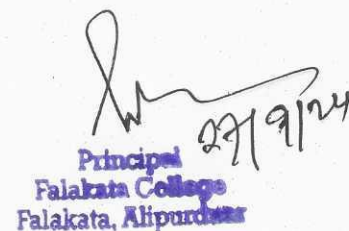 ২৭/৯/২৪
Principal
Falakata College
Falakata, Alipurduar